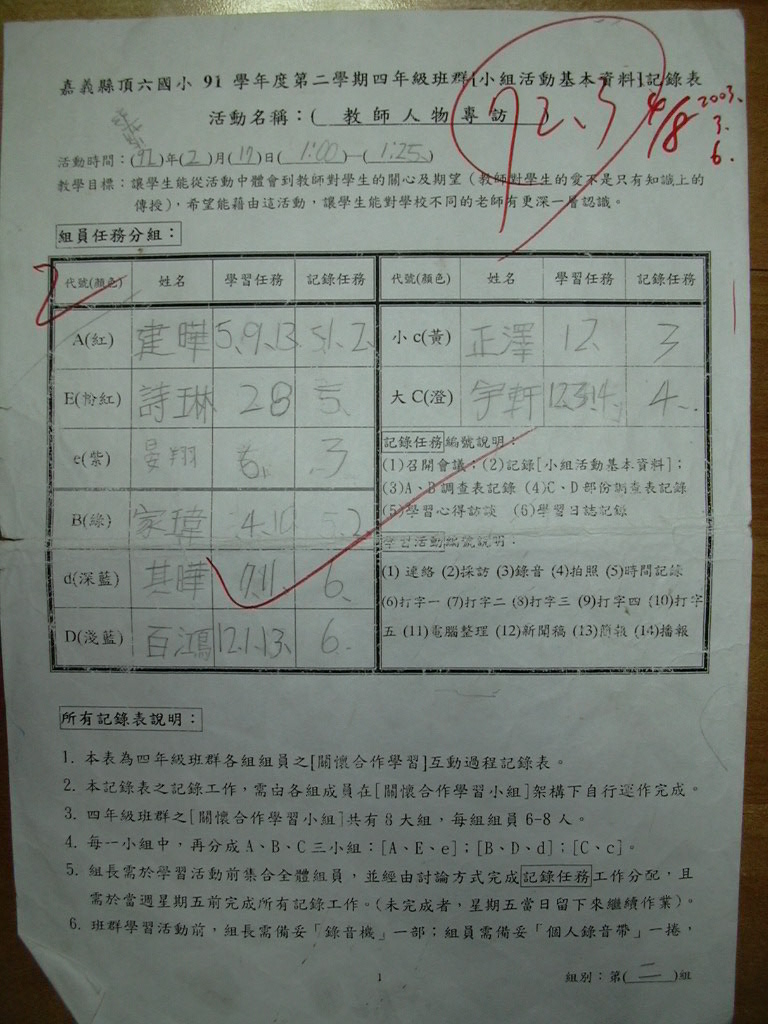 嘉義縣頂六國小 91 學年度第二學期四年級班群[小組活動基本資料]記錄表
活動名稱：( 教師人物專訪 )
92、3
4/8
2003.
3.
6.
活動時間：(92)年(2)月(17)日( 1:00 )—( 1:25 )
教學目標：讓學生能從活動中體會到教師對學生的關心及期望（教師對學生的愛不是只有知識上的
傳授），希望能藉由這活動，讓學生能對學校不同的老師有更深一層認識。
組員任務分組：
代號(顏色) 姓名 學習任務 記錄任務 代號(顏色) 姓名 學習任務 記錄任務
A(紅) 建曄 5、9、13 5、1、2、 小c(黃) 正澤 12、 3
E(粉紅) 詩琳 2 8 5、 大C(澄) 宇軒 12、3、14 4、
e(紫) 晏翔 6、 3
B(綠) 家瑋 4、10 5、2
d(深藍) 其曄 7、11、 6、
D(淺藍) 百鴻 12、1、13、 6、
記錄任務編號說明：
(1)召開會議；(2)記錄[小組活動基本資料]；
(3)A、B調查表記錄 (4)C、D部份調查表記錄
(5)學習心得訪談 (6)學習日誌記錄
學習活動編號說明：
(1) 連絡 (2)採訪 (3)錄音 (4)拍照 (5)時間記錄
(6)打字一 (7)打字二 (8)打字三 (9)打字四 (10)打字
五 (11)電腦整理 (12)新聞稿 (13)簡報 (14)播報
所有記錄表說明：
1. 本表為四年級班群各組組員之[關懷合作學習]互動過程記錄表。
2. 本記錄表之記錄工作，需由各組成員在[關懷合作學習小組]架構下自行運作完成。
3. 四年級班群之[關懷合作學習小組]共有8大組，每組組員6-8人。
4. 每一小組中，再分成A、B、C三小組：[A、E、e]；[B、D、d]；[C、c]。
5. 組長需於學習活動前集合全體組員，並經由討論方式完成記錄任務工作分配，且
需於當週星期五前完成所有記錄工作。（未完成者，星期五當日留下來繼續作業）。
6. 班群學習活動前，組長需備妥「錄音機」一部；組員需備妥「個人錄音帶」一捲，
1
組別：第( 二 )組